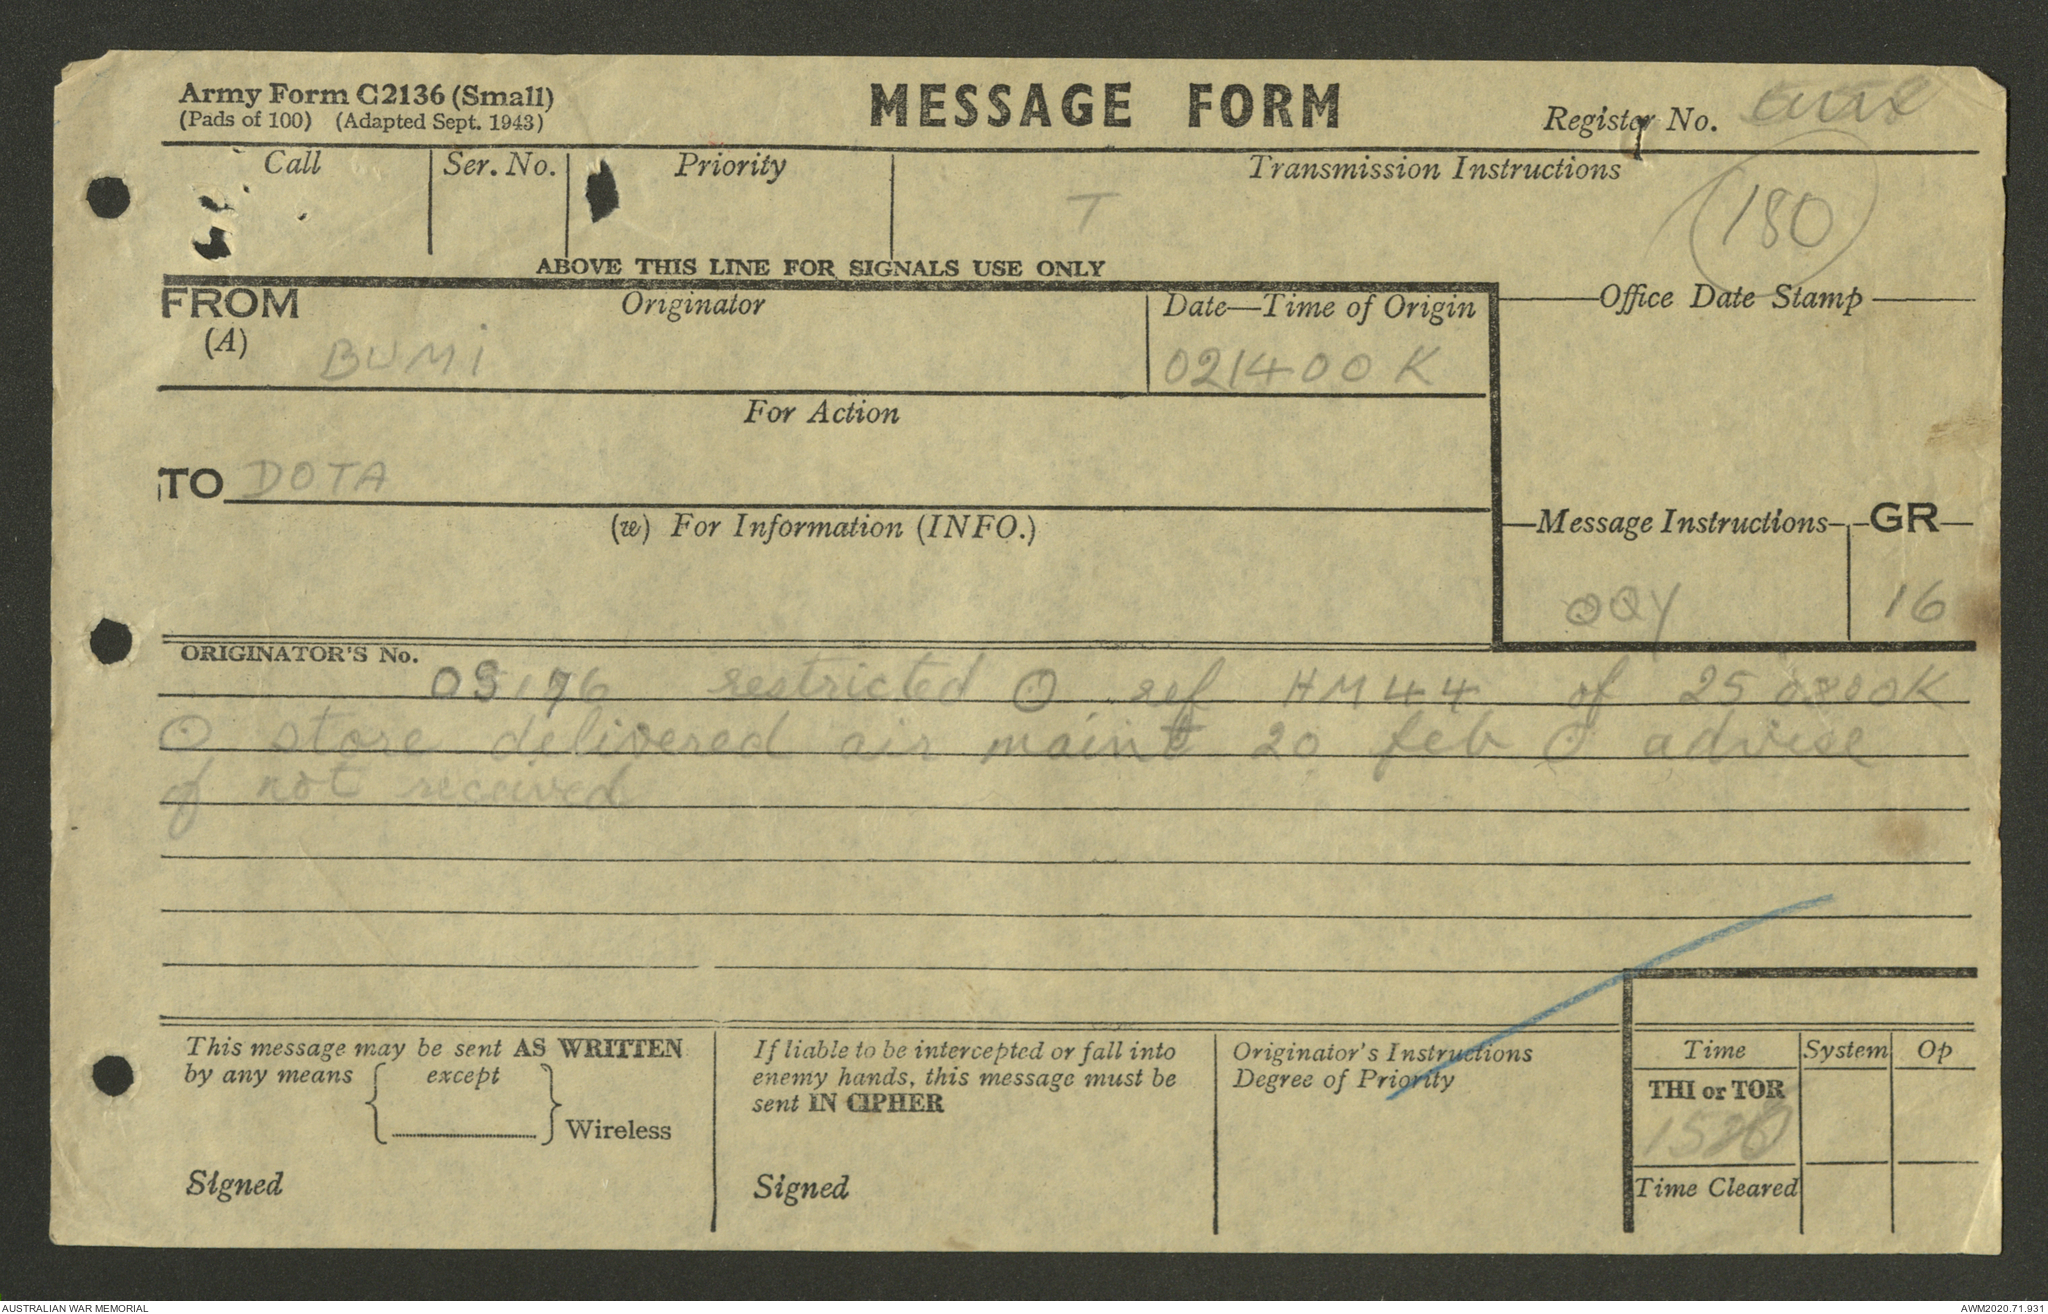 Army Form C2136 (Small)
(Pads of 100) (Adapted Sept. 1943)
MESSAGE FORM
Register No.
Call
Ser. No.
Priority
Transmission Instructions
T
180
ABOVE THIS LINE FOR SIGNALS USE ONLY
FROM
(A)
Originator
BUMI
Date—Time of Origin
021400K
Office Date Stamp
For Action
TO DOTA
(w) For Information (INFO.)
Message Instructions
GR
QQY
16
ORIGINATOR'S No.
OS176 restricted O ref HM44 of 250800K
O store delivered air maint 20 feb O advise
if not received
This message may be sent AS WRITTEN
by any means except
Wireless
Signed
If liable to be intercepted or fall into
enemy hands, this message must be
sent IN CIPHER
Signed
Originator's Instructions
Degree of Priority
Time
System
Op
THI or TOR
Time Cleared
AUSTRALIAN WAR MEMORIAL
AWM2020.71.931